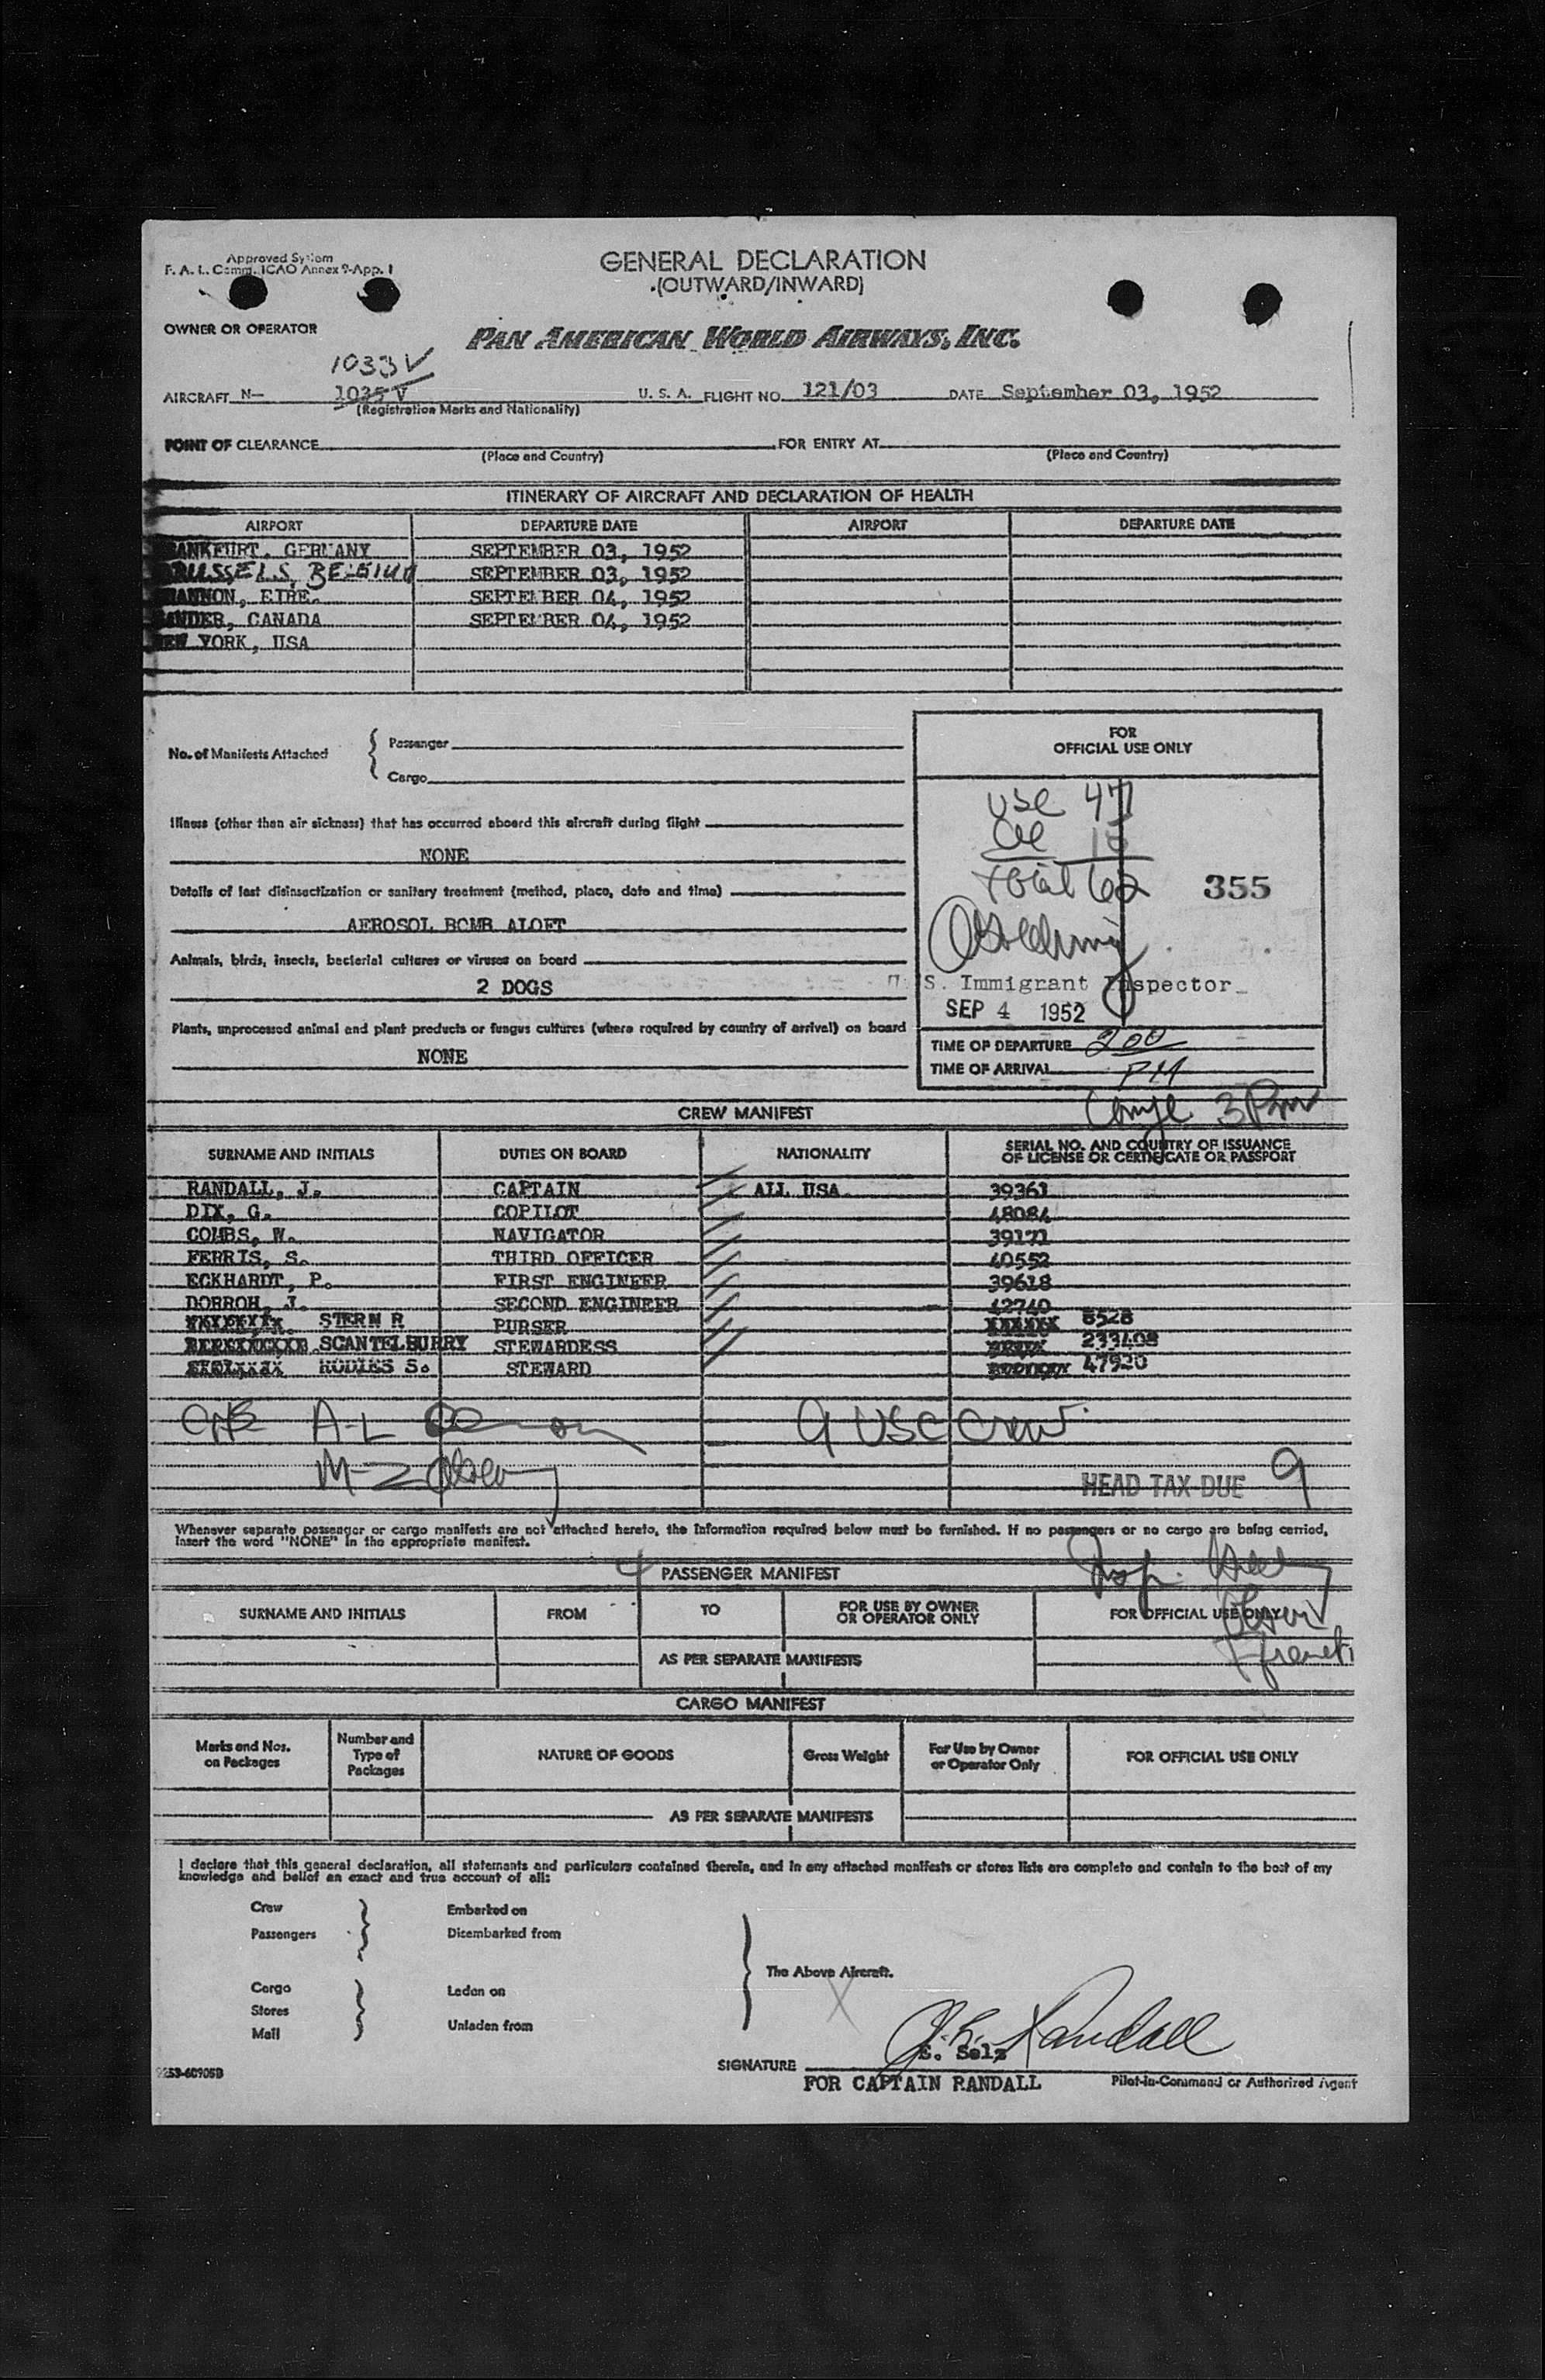 Approved System
F. A. L. Comm. ICAO Annex 9-App. 1
GENERAL DECLARATION
(OUTWARD/INWARD)
OWNER OR OPERATOR
PAN AMERICAN WORLD AIRWAYS, INC.
1033V
AIRCRAFT N— 1035V U. S. A. FLIGHT NO. 121/03 DATE September 03, 1952
(Registration Marks and Nationality)
POINT OF CLEARANCE FOR ENTRY AT
(Place and Country) (Place and Country)
ITINERARY OF AIRCRAFT AND DECLARATION OF HEALTH
AIRPORT DEPARTURE DATE AIRPORT DEPARTURE DATE
FRANKFURT, GERMANY SEPTEMBER 03, 1952
BRUSSELS, BELGIUM SEPTEMBER 03, 1952
SHANNON, EIRE. SEPTEMBER 04, 1952
GANDER, CANADA SEPTEMBER 04, 1952
NEW YORK, USA
No. of Manifests Attached { Passenger
Cargo
FOR
OFFICIAL USE ONLY
USC 47
Total 62
355
U. S. Immigrant Inspector
SEP 4 1952
TIME OF DEPARTURE 200
TIME OF ARRIVAL PM
3 PM
Illness (other than air sickness) that has occurred aboard this aircraft during flight
NONE
Details of last disinsectization or sanitary treatment (method, place, date and time)
AEROSOL BOMB ALOFT
Animals, birds, insects, bacterial cultures or viruses on board
2 DOGS
Plants, unprocessed animal and plant products or fungus cultures (where required by country of arrival) on board
NONE
CREW MANIFEST
SURNAME AND INITIALS DUTIES ON BOARD NATIONALITY SERIAL NO. AND COUNTRY OF ISSUANCE OF LICENSE OR CERTIFICATE OR PASSPORT
RANDALL, J. CAPTAIN ALL USA 39361
DIX, G. COPILOT 48084
COMBS, W. NAVIGATOR 39171
FERRIS, S. THIRD OFFICER 40552
ECKHARDT, P. FIRST ENGINEER 39618
DORROH, J. SECOND ENGINEER 42740
STERN R PURSER 8528
SCANTELBURRY STEWARDESS 233408
RODIES S. STEWARD 47920
A-L
9 USC Crew
M-Z
HEAD TAX DUE 9
Whenever separate passenger or cargo manifests are not attached hereto, the information required below must be furnished. If no passengers or no cargo are being carried,
insert the word "NONE" in the appropriate manifest.
PASSENGER MANIFEST
SURNAME AND INITIALS FROM TO FOR USE BY OWNER OR OPERATOR ONLY FOR OFFICIAL USE ONLY
AS PER SEPARATE MANIFESTS
CARGO MANIFEST
Marks and Nos. on Packages Number and Type of Packages NATURE OF GOODS Gross Weight For Use by Owner or Operator Only FOR OFFICIAL USE ONLY
AS PER SEPARATE MANIFESTS
I declare that this general declaration, all statements and particulars contained therein, and in any attached manifests or stores lists are complete and contain to the best of my
knowledge and belief an exact and true account of all:
Crew Embarked on
Passengers Disembarked from
The Above Aircraft.
Cargo Laden on
Stores
Mail Unladen from
J. R. Randall
E. Selz
SIGNATURE
FOR CAPTAIN RANDALL Pilot-in-Command or Authorized Agent